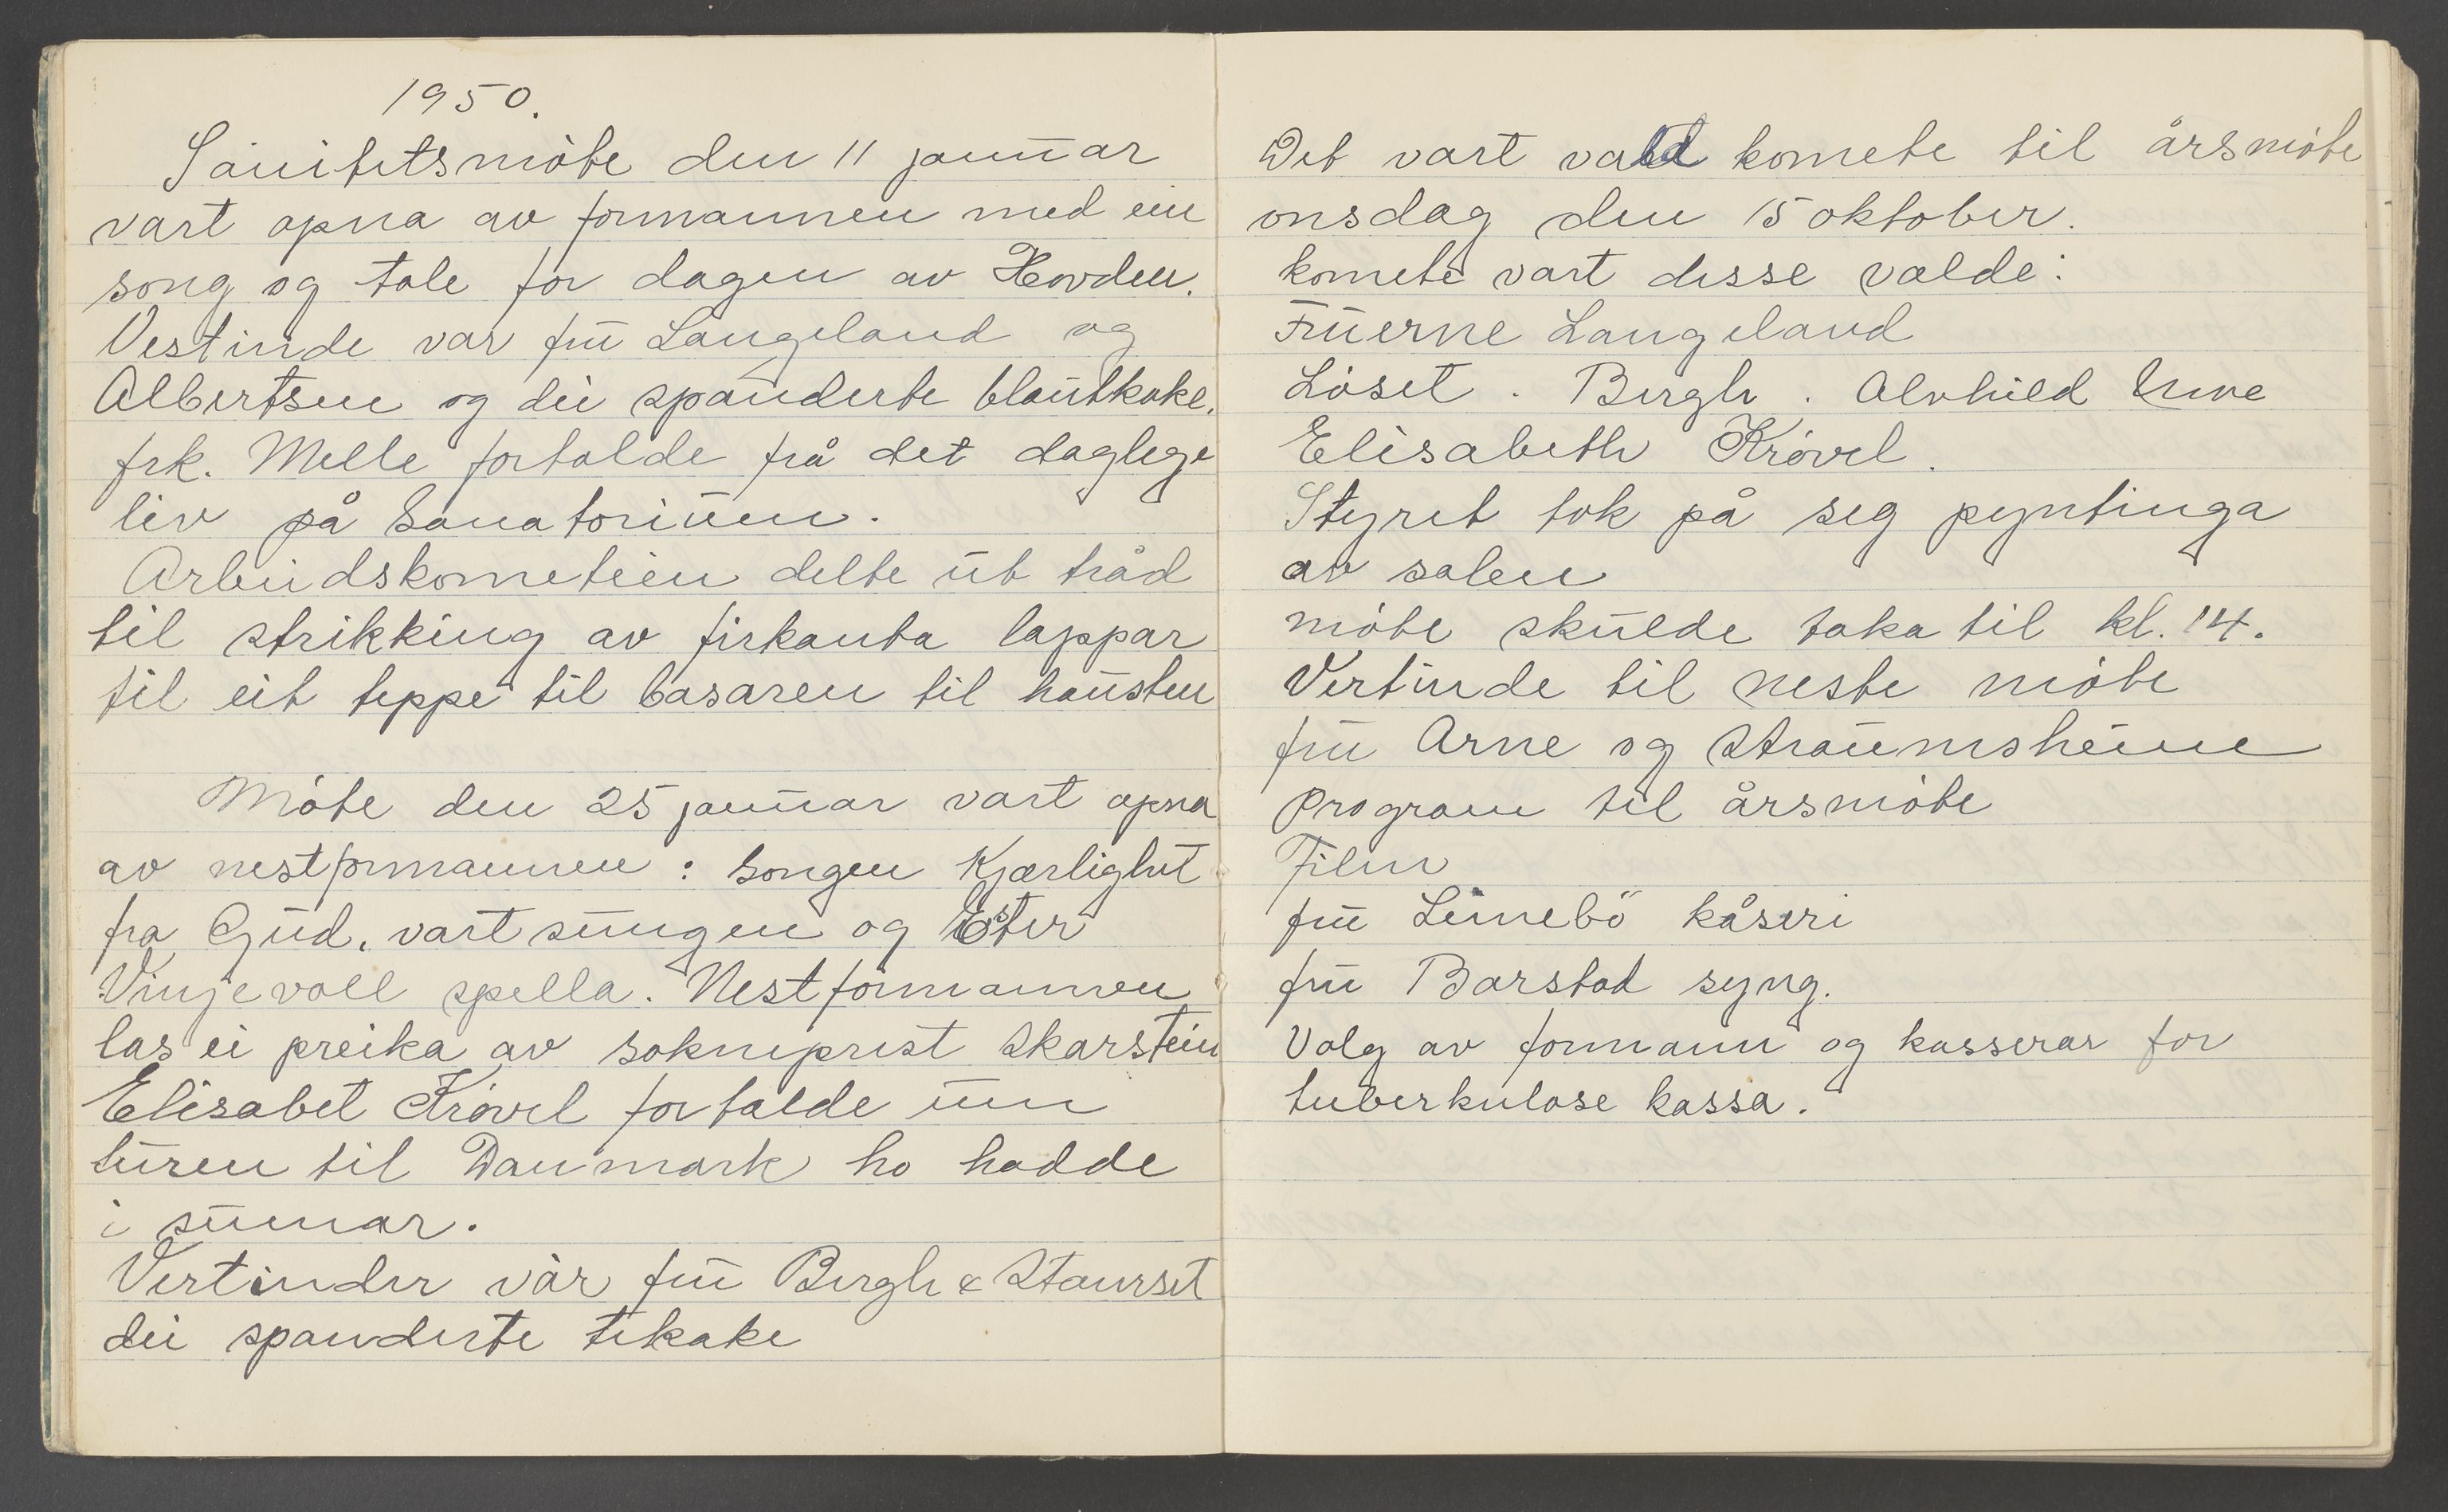 1950.
Sanitetsmöte den 11 januar
vart opna av formannen med ein
song og tale for dagen av Hovden.
Vestinde var fru Langeland og
Albertsen og dei spanderte blautkake.
frk. Melle fortalde frå det daglege
liv på Sanatorium.
Arbeidskometeen delte ut tråd
til strikking av firkanta lappar
til eit teppe til basaren til hausten
Möte den 25 januar vart opna
av nestformannen: Songen Kjærlighet
fra Gud, vart sungen og Ester
Vinjevoll spella. Nestformannen
las ei preika av sokneprest Skarstein
Elisabet Krövel fortalde um
turen til Danmark ho hadde
i sumar.
Vertinder var fru Bergh & Staurset
dei spanderte tekake
Det vart vald komete til årsmöte
onsdag den 15 oktober.
komete vart disse valde:
Fruerne Langeland
Löset. Bergh. Alvhild
Elisabeth Krövel.
Styret tok på seg pyntinga
av salen
möte skulde taka til kl. 14.
Vertinde til neste möte
fru Arne og Straumsheim
Program til årsmöte
Film
fru Linebö kåseri
fru Barstad syng.
Valg av formann og kasserar for
tuberkulose kassa.